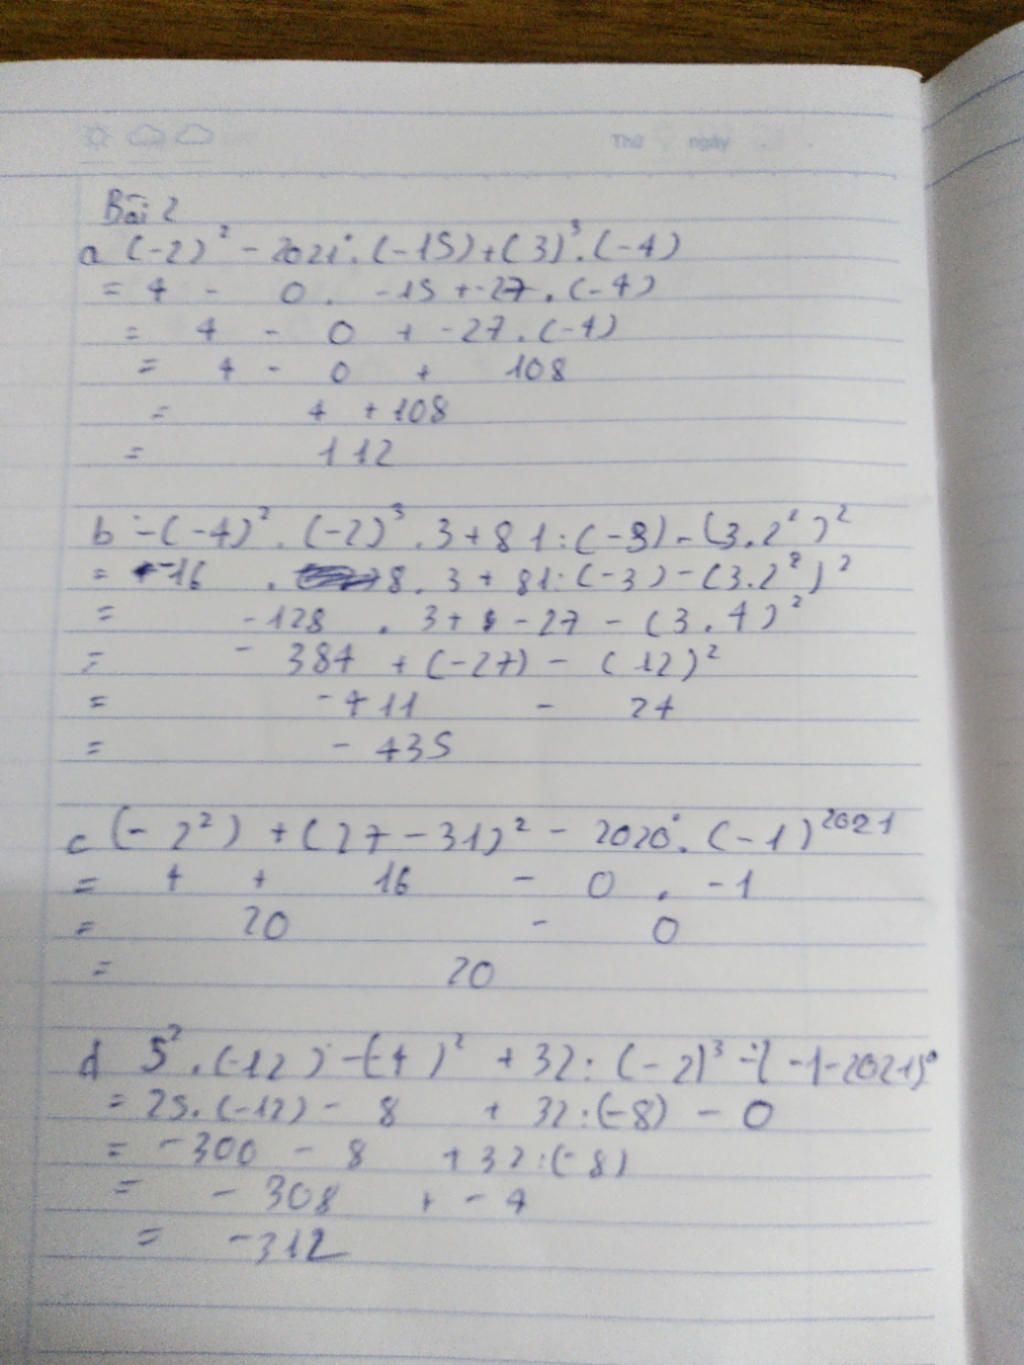 Thứ ngày
Bài 2
a (-2)² - 2021⁰.(-15)+(3)³.(-4)
= 4 - 0. -15 + -27.(-4)
= 4 - 0 + -27.(-4)
= 4 - 0 + 108
= 4 + 108
= 112
b -(-4)².(-2)³.3+81:(-3)-(3.2²)²
= -16 . 8. 3 + 81:(-3)-(3.2²)²
= -128 . 3+ -27 - (3.4)²
= - 384 +(-27) - (12)²
= -411 - 24
= - 435
c (-2²) +(27-31)² - 2020⁰.(-1)²⁰²¹
= 4 + 16 - 0 . -1
= 20 - 0
= 20
d 5².(-12) -(4)² + 32:(-2)³ -(-1-2021)⁰
= 25.(-12) - 8 + 32:(-8) - 0
= -300 - 8 +32:(-8)
= - 308 + - 4
= -312